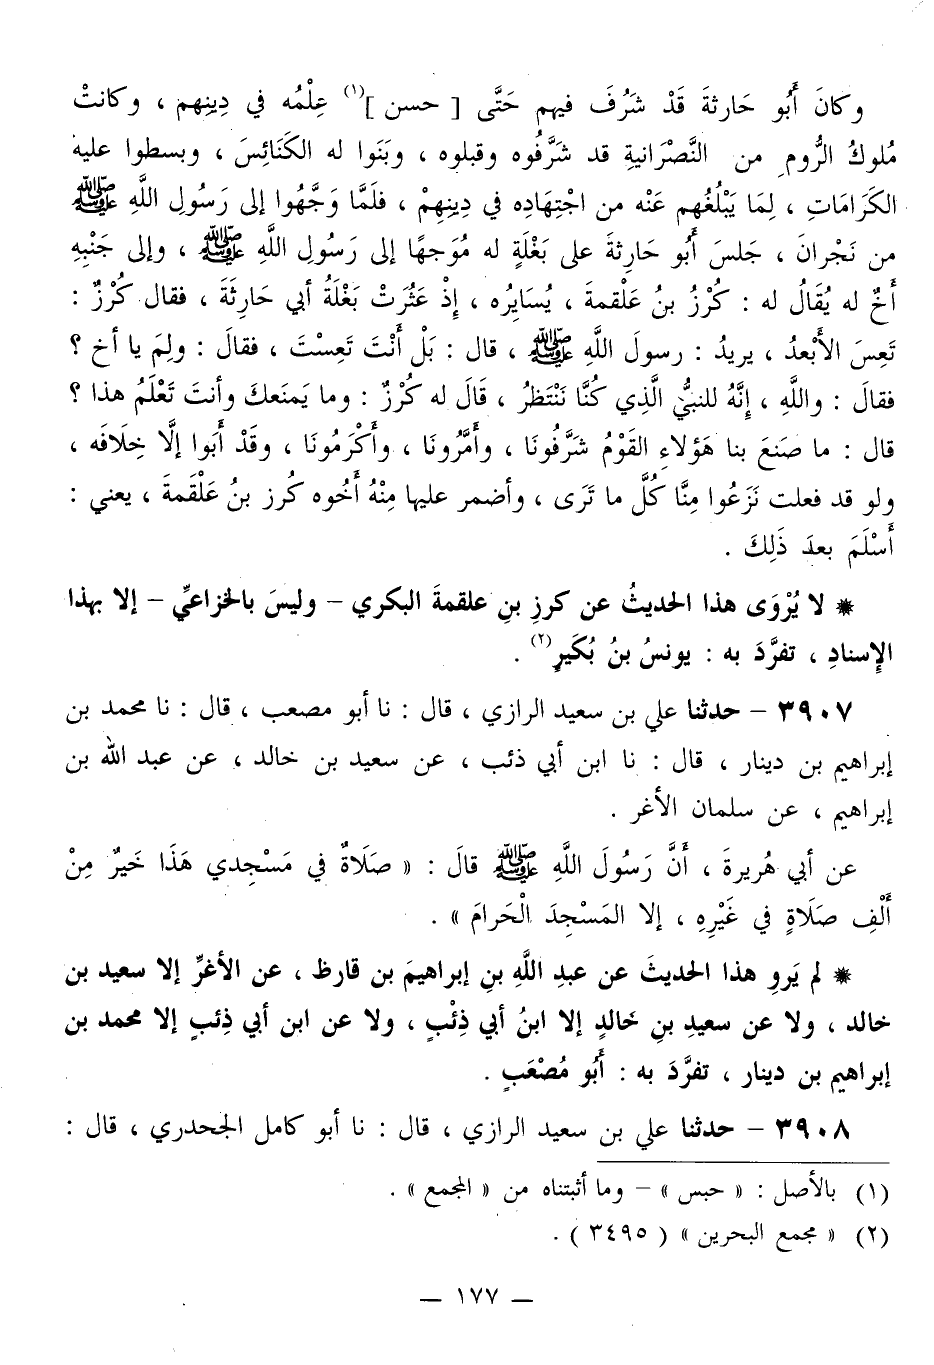 وكانَ أَبُو حَارثةَ قَدْ شَرُفَ فيهم حَتَّى [ حسن ](١) عِلْمُه في دِينِهم ، وكانتْ
مُلوكُ الرُّومِ من النَّصْرَانيةِ قد شَرَّفُوه وقبلوه ، وبَنَوا له الكَنَائِسَ ، وبسطوا عليه
الكَرَامَاتِ ، لِمَا يَبْلُغُهم عَنْه من اجْتِهَادِه في دِينِهِمْ ، فلَمَّا وَجَّهُوا إلى رَسُولِ اللَّهِ ﷺ
من نَجْرانَ ، جَلسَ أَبُو حَارِثةَ على بَغْلَةٍ له مُوَجهًا إلى رَسُولِ اللَّهِ ﷺ ، وإلى جَنْبِهِ
أَخٌ له يُقَالُ له : كُرْزُ بنُ عَلْقمةَ ، يُسَايِرُه ، إِذْ عَثُرَتْ بَغْلَةُ أبي حَارِثَةَ ، فقال كُرْزٌ :
تَعِسَ الأَبْعدُ ، يريدُ : رسولَ اللَّهِ ﷺ ، قال : بَلْ أَنْتَ تَعِسْتَ ، فقالَ : ولِمَ يا أخ ؟
فقالَ : واللَّهِ ، إِنَّهُ للنبيُّ الَّذِي كُنَّا نَنْتَظرُ ، قَالَ له كُرْزٌ : وما يَمنَعكَ وأنتَ تَعْلَمُ هذا ؟
قال : ما صَنعَ بنا هَؤلاءِ القَوْمُ شرَّفُونَا ، وأَمَّرُونَا ، وأَكْرَمُونَا ، وقَدْ أَبَوا إلَّا خِلَافَه ،
ولو قد فعلت نَزَعُوا مِنَّا كُلَّ ما تَرَى ، وأضمر عليها مِنْهُ أَخُوه كُرز بنُ عَلْقمةَ ، يعني :
أَسْلَمَ بعدَ ذَلِكَ .
* لا يُرْوَى هذا الحديثُ عن كرزِ بنِ علقمةَ البكري – وليسَ بالخزاعيِّ – إلا بهذا
الإِسنادِ ، تفرَّدَ به : يونسُ بنُ بُكَيرٍ(٢) .
٣٩٠٧ – حدثنا علي بن سعيد الرازي ، قال : نا أبو مصعب ، قال : نا محمد بن
إبراهيم بن دينار ، قال : نا ابن أبي ذئب ، عن سعيد بن خالد ، عن عبد الله بن
إبراهيم ، عن سلمان الأغر .
عن أبي هُريرةَ ، أَنَّ رَسُولَ اللَّهِ ﷺ قالَ : « صَلَاةٌ في مَسْجِدي هَذَا خَيرٌ مِنْ
أَلْفِ صَلَاةٍ في غَيْرِهِ ، إلا المَسْجِدَ الْحَرامَ » .
* لم يَروِ هذا الحديثَ عن عبدِ اللَّهِ بنِ إبراهيمَ بن قارظ ، عن الأغرِّ إلا سعيد بن
خالد ، ولا عن سعيدِ بنِ خَالدٍ إلا ابنُ أبي ذِئْبٍ ، ولا عن ابن أبي ذِئبٍ إلا محمد بن
إبراهيم بن دينار ، تفرَّدَ به : أَبُو مُصْعَبٍ .
٣٩٠٨ – حدثنا علي بن سعيد الرازي ، قال : نا أبو كامل الجحدري ، قال :
(١) بالأصل : « حبس » – وما أثبتناه من « المجمع » .
(٢) « مجمع البحرين » ( ٣٤٩٥ ) .
– ١٧٧ –